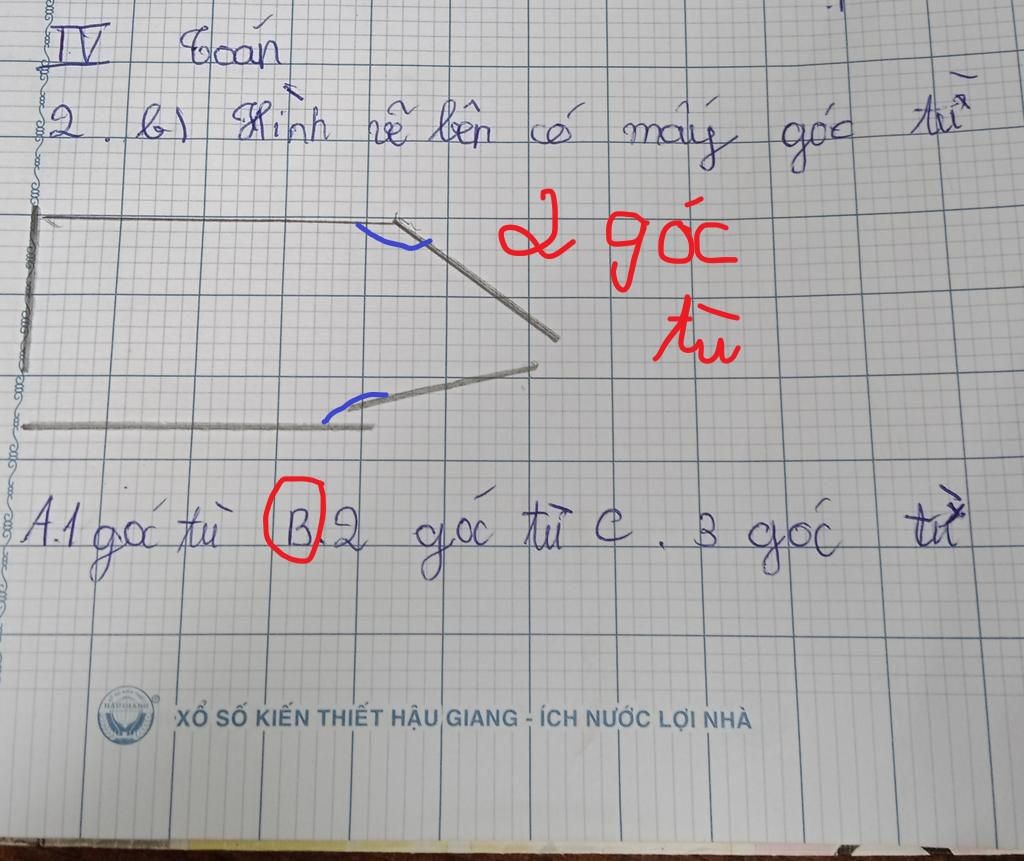 IV Toán
2. b) Hình vẽ bên có mấy góc tù
2 góc
tù
A.1 góc tù B.2 góc tù C. 3 góc tù
HẬU GIANG
XỔ SỐ KIẾN THIẾT HẬU GIANG - ÍCH NƯỚC LỢI NHÀ